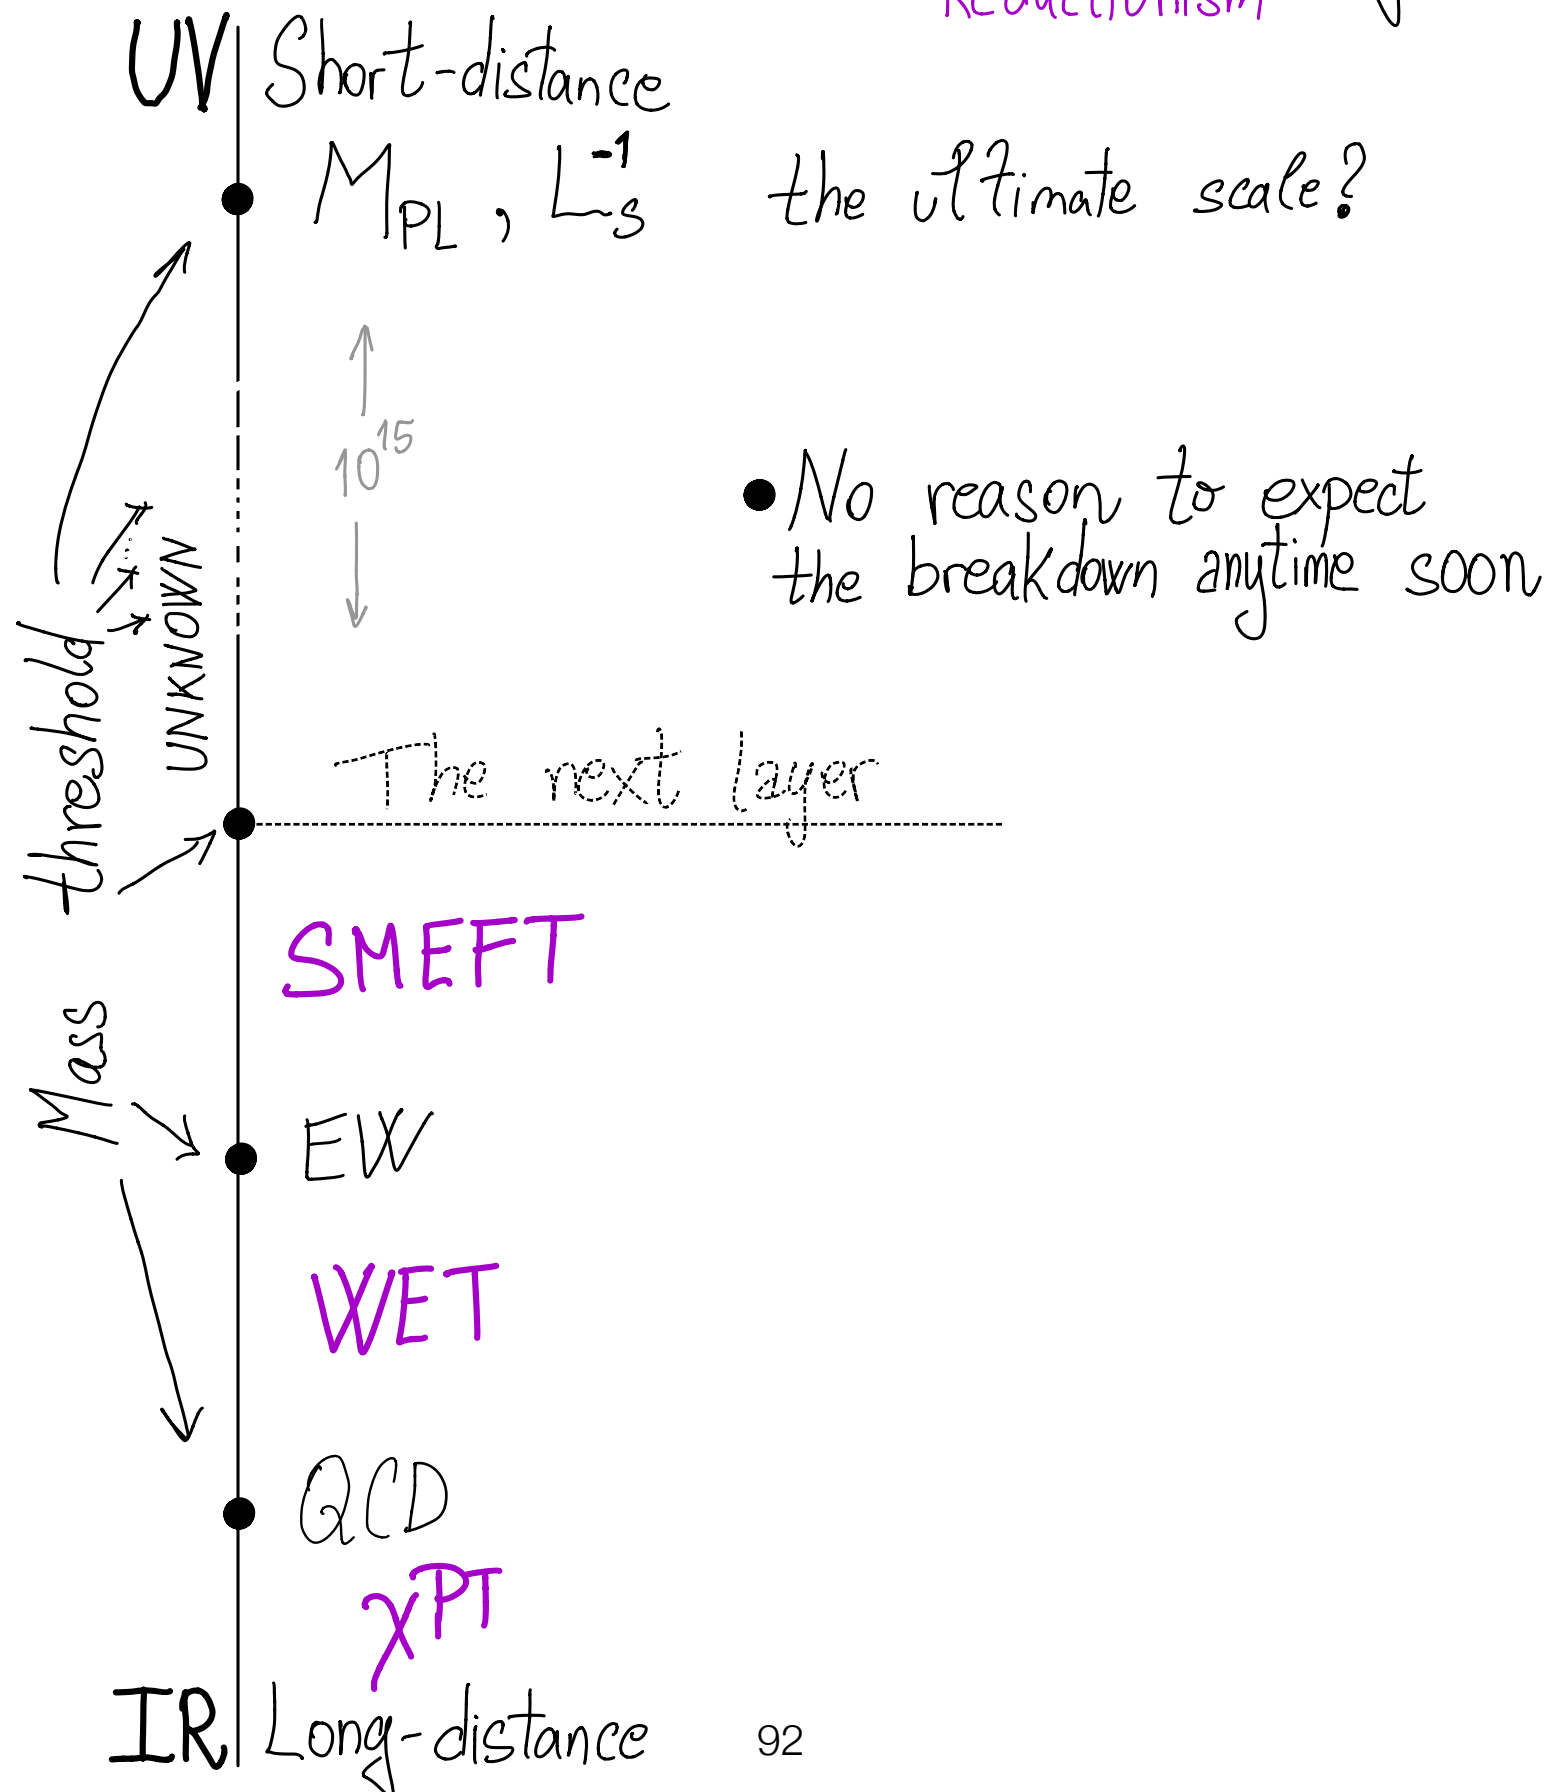 Reductionism
UV Short-distance
M_PL, L_s^-1 the ultimate scale?
10^15
• No reason to expect
the breakdown anytime soon
UNKNOWN
Mass threshold
The next layer
SMEFT
EW
WET
QCD
χPT
IR Long-distance
92